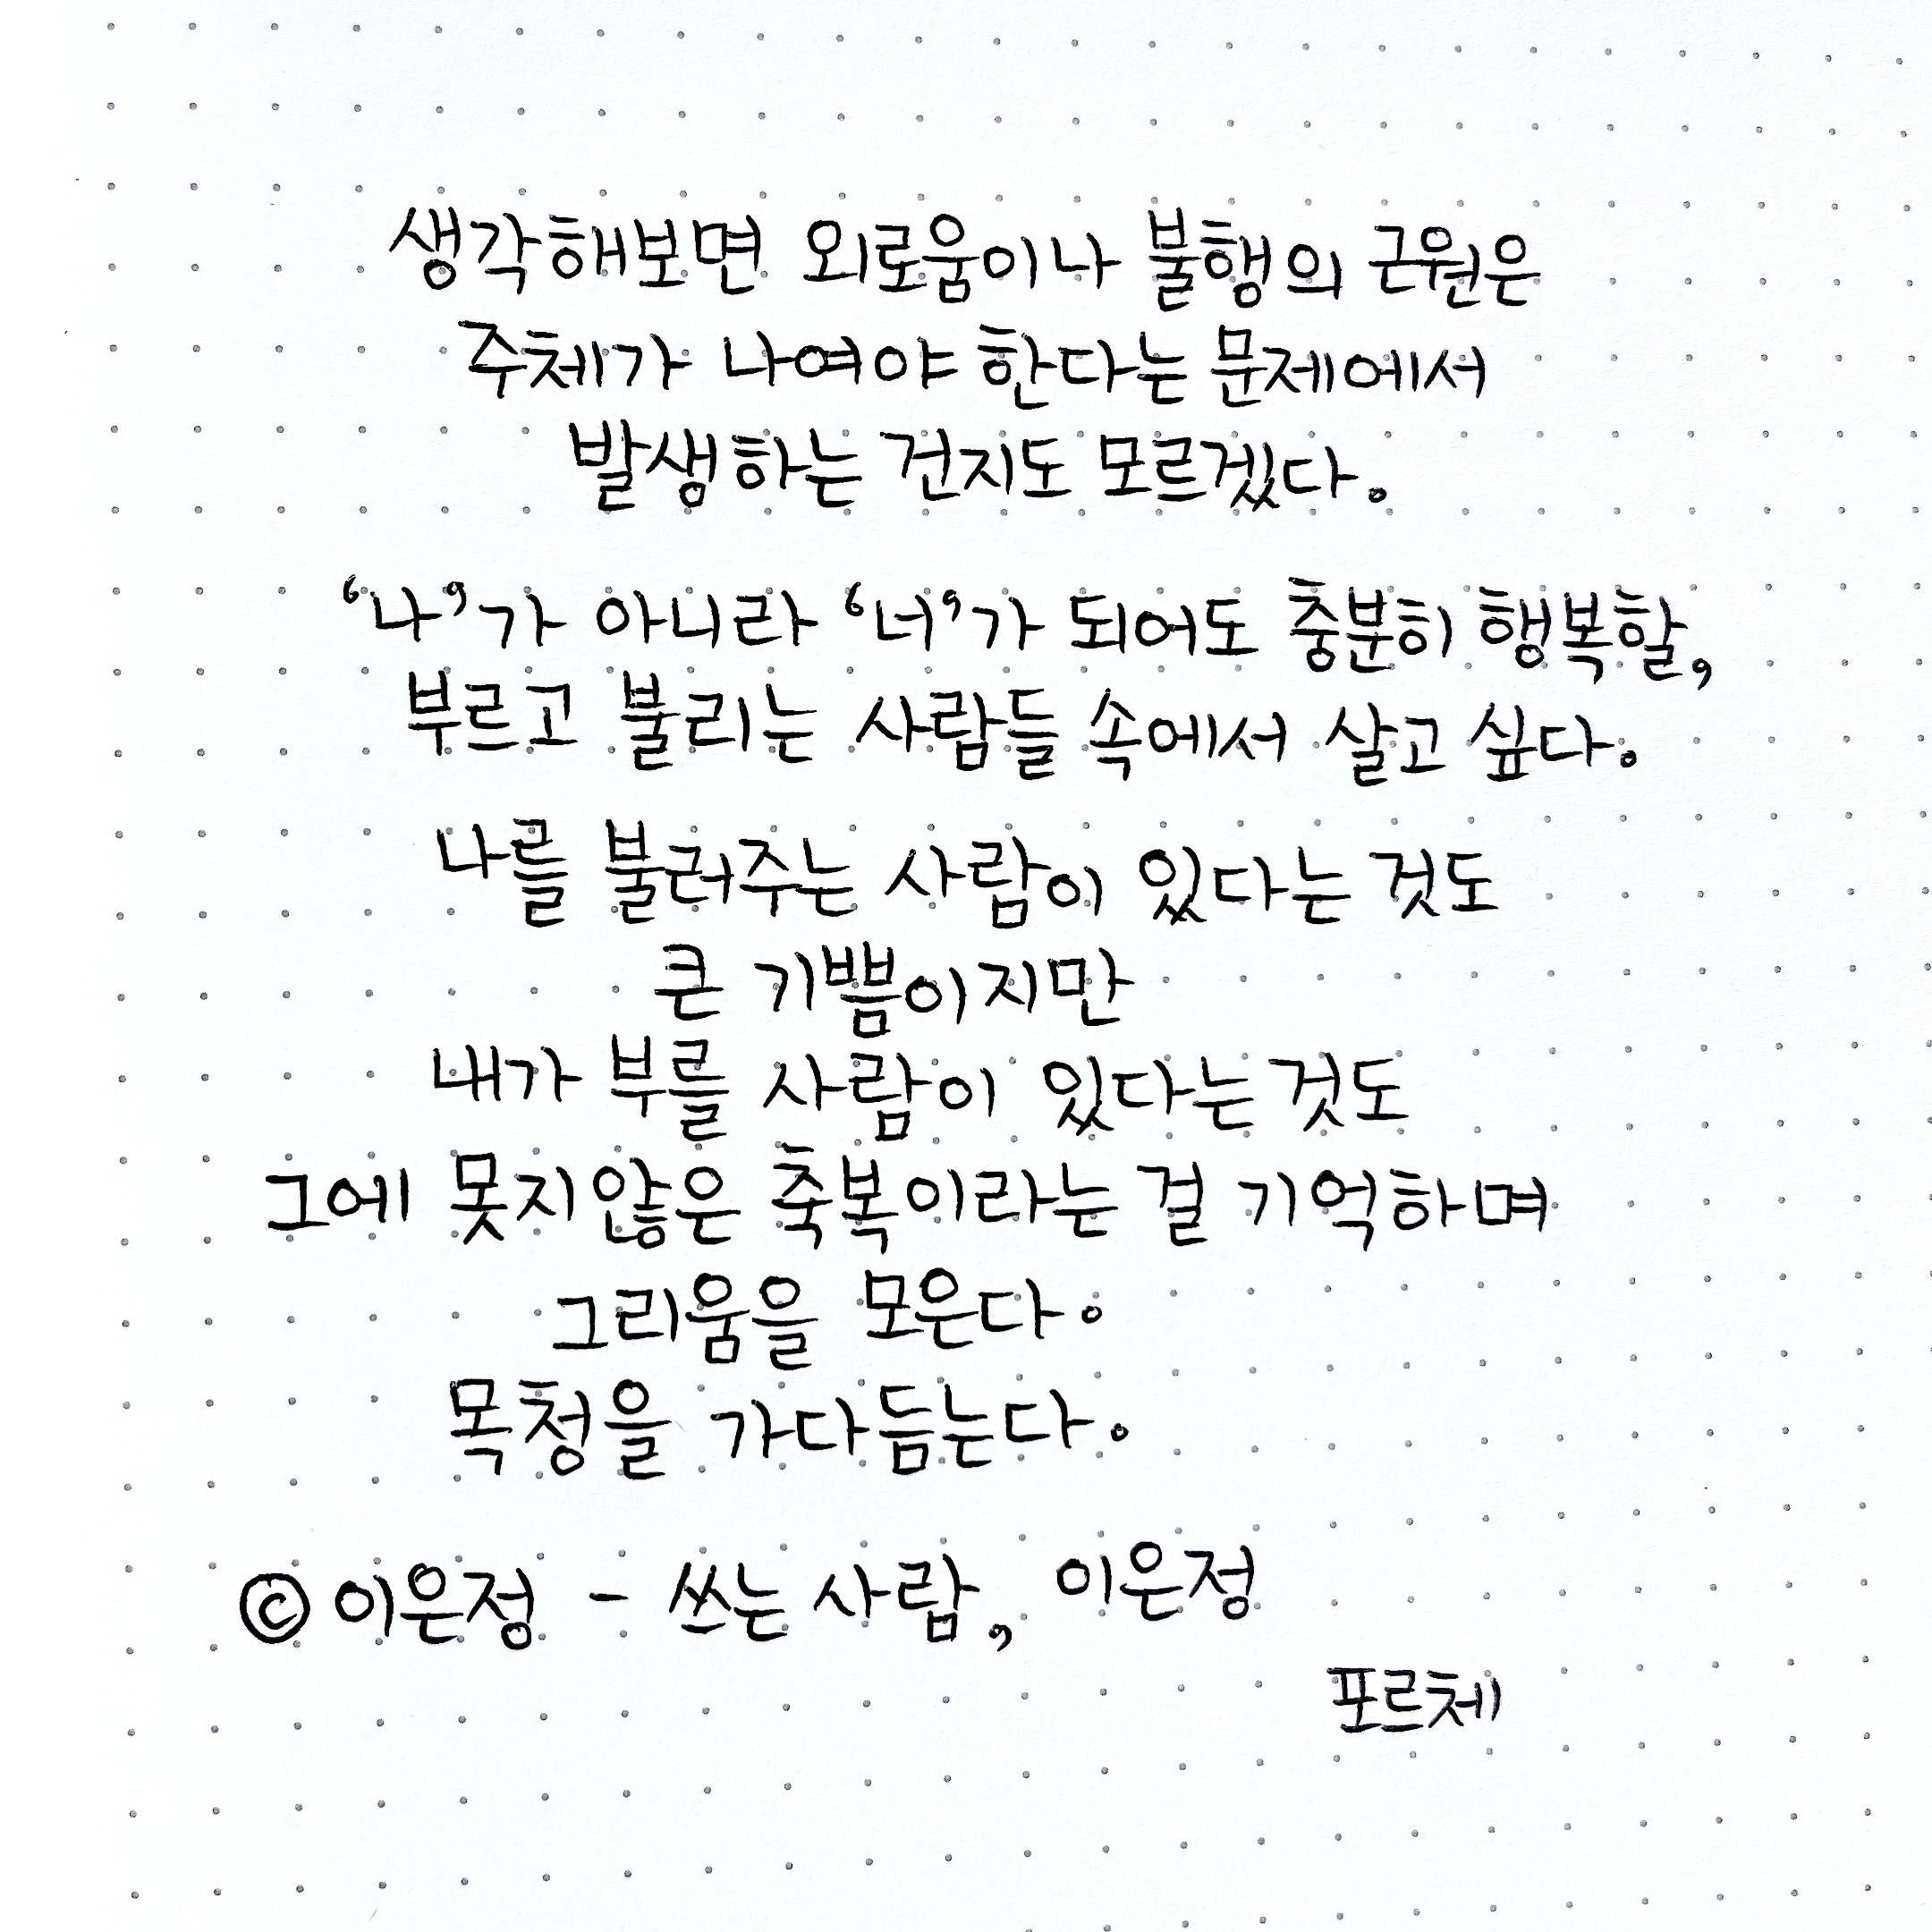 생각해보면 외로움이나 불행의 근원은
주체가 나여야 한다는 문제에서
발생하는 건지도 모르겠다.
‘나’가 아니라 ‘너’가 되어도 충분히 행복할,
부르고 불리는 사람들 속에서 살고 싶다.
나를 불러주는 사람이 있다는 것도
큰 기쁨이지만
내가 부를 사람이 있다는 것도
그에 못지않은 축복이라는 걸 기억하며
그리움을 모은다.
목청을 가다듬는다.
© 이은정 - 쓰는 사람, 이은정
포르체